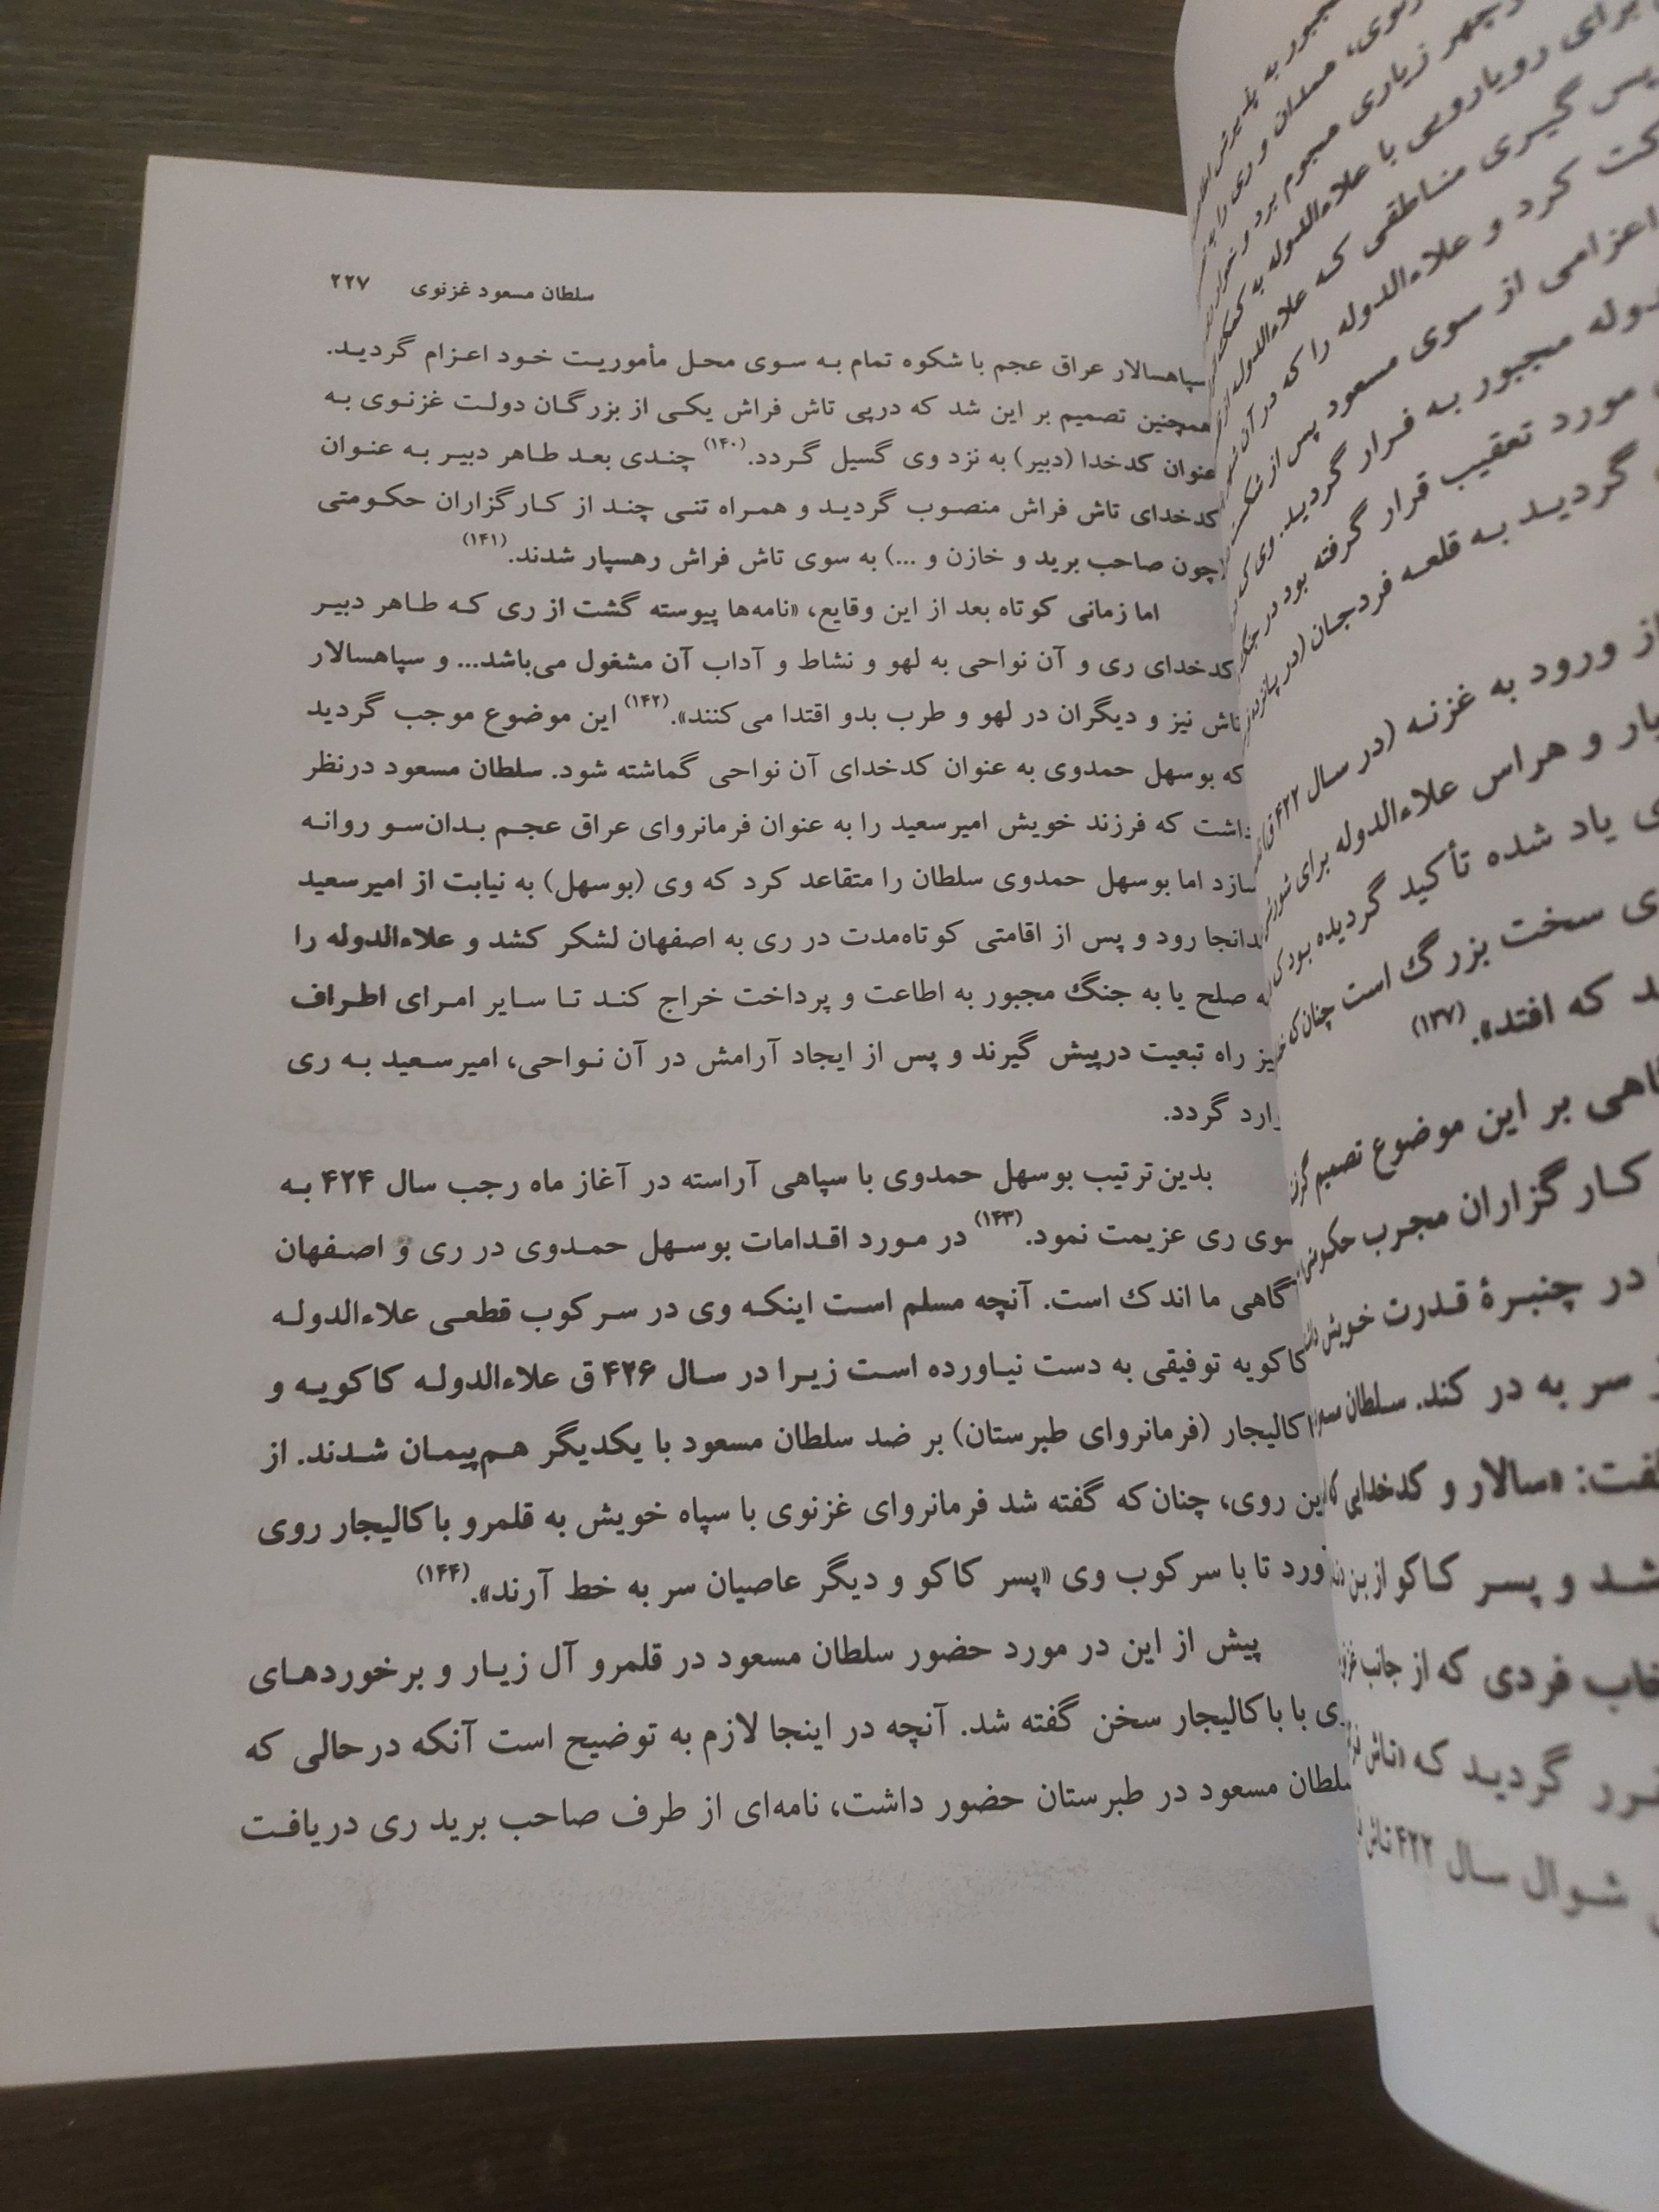 سلطان مسعود غزنوی ۲۲۷
سپاهسالار عراق عجم با شکوه تمام به سوی محل مأموریت خود اعزام گردید.
همچنین تصمیم بر این شد که درپی تاش فراش یکی از بزرگان دولت غزنوی به
عنوان کدخدا (دبیر) به نزد وی گسیل گردد.(۱۴۰) چندی بعد طاهر دبیر به عنوان
کدخدای تاش فراش منصوب گردید و همراه تنی چند از کارگزاران حکومتی
(چون صاحب برید و خازن و ...) به سوی تاش فراش رهسپار شدند.(۱۴۱)
اما زمانی کوتاه بعد از این وقایع، «نامه‌ها پیوسته گشت از ری که طاهر دبیر
کدخدای ری و آن نواحی به لهو و نشاط و آداب آن مشغول می‌باشد... و سپاهسالار
تاش نیز و دیگران در لهو و طرب بدو اقتدا می‌کنند».(۱۴۲) این موضوع موجب گردید
که بوسهل حمدوی به عنوان کدخدای آن نواحی گماشته شود. سلطان مسعود درنظر
داشت که فرزند خویش امیرسعید را به عنوان فرمانروای عراق عجم بدان‌سو روانه
سازد اما بوسهل حمدوی سلطان را متقاعد کرد که وی (بوسهل) به نیابت از امیرسعید
بدانجا رود و پس از اقامتی کوتاه‌مدت در ری به اصفهان لشکر کشد و علاءالدوله را
به صلح یا به جنگ مجبور به اطاعت و پرداخت خراج کند تا سایر امرای اطراف
نیز راه تبعیت درپیش گیرند و پس از ایجاد آرامش در آن نواحی، امیرسعید به ری
وارد گردد.
بدین‌ترتیب بوسهل حمدوی با سپاهی آراسته در آغاز ماه رجب سال ۴۲۴ به
سوی ری عزیمت نمود.(۱۴۳) در مورد اقدامات بوسهل حمدوی در ری و اصفهان
آگاهی ما اندک است. آنچه مسلم است اینکه وی در سرکوب قطعی علاءالدوله
کاکویه توفیقی به دست نیاورده است زیرا در سال ۴۲۶ ق علاءالدوله کاکویه و
باکالیجار (فرمانروای طبرستان) بر ضد سلطان مسعود با یکدیگر هم‌پیمان شدند. از
این روی، چنان‌که گفته شد فرمانروای غزنوی با سپاه خویش به قلمرو باکالیجار روی
آورد تا با سرکوب وی «پسر کاکو و دیگر عاصیان سر به خط آرند».(۱۴۴)
پیش از این در مورد حضور سلطان مسعود در قلمرو آل زیار و برخوردهای
وی با باکالیجار سخن گفته شد. آنچه در اینجا لازم به توضیح است آنکه درحالی که
سلطان مسعود در طبرستان حضور داشت، نامه‌ای از طرف صاحب برید ری دریافت
زیاری هجوم برد و
برای رویارویی با علاءالدوله به کمک
پس گیری مناطقی که علاءالدوله از
کرد و علاءالدوله را که در آن
اعزامی از سوی مسعود پس از شکست
مجبور به فرار گردید. وی که
مورد تعقیب قرار گرفته بود در جنگ
گردید به قلعه فردجان (در پانزده
از ورود به غزنه (در سال ۴۲۲ ق
و هراس علاءالدوله برای
یاد شده تأکید گردیده بود که
سخت بزرگ است چنان‌که
که افتد».(۱۳۷)
بر این موضوع تصمیم گرفت
کارگزاران مجرب حکومتی
در چنبرهٔ قدرت خویش
سر به در کند. سلطان
گفت: «سالار و کدخدایی که
شد و پسر کاکو از بن
فردی که از جانب
گردید که «تاش
شوال سال ۴۲۲ تاش